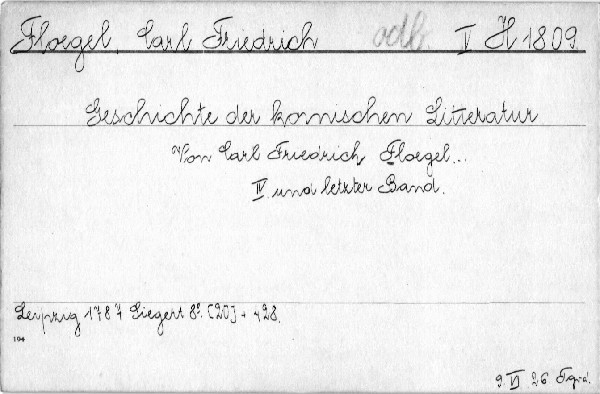 Floegel, Carl Friedrich odb V H 1809
Geschichte der komischen Litteratur
Von Carl Friedrich Floegel...
IV und letzter Band.
Leipzig 1787 Siegert 8°. [20] + 428.
104
9. VI 26